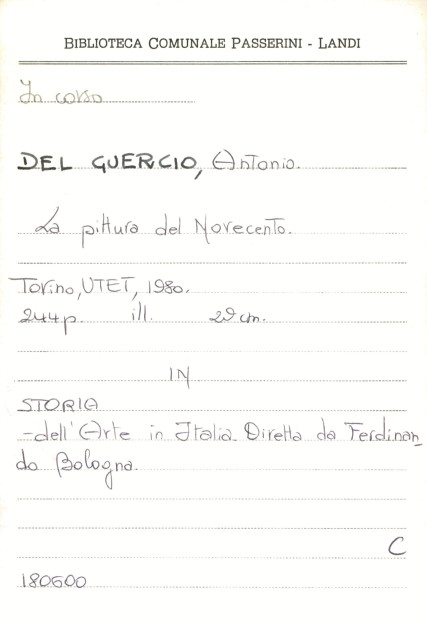 BIBLIOTECA COMUNALE PASSERINI - LANDI
In corso
DEL GUERCIO, Antonio.
La pittura del Novecento.
Torino, UTET, 1980.
244 p. ill. 29 cm.
IN
STORIA
-dell'Arte in Italia. Diretta da Ferdinan_
do Bologna.
C
180600